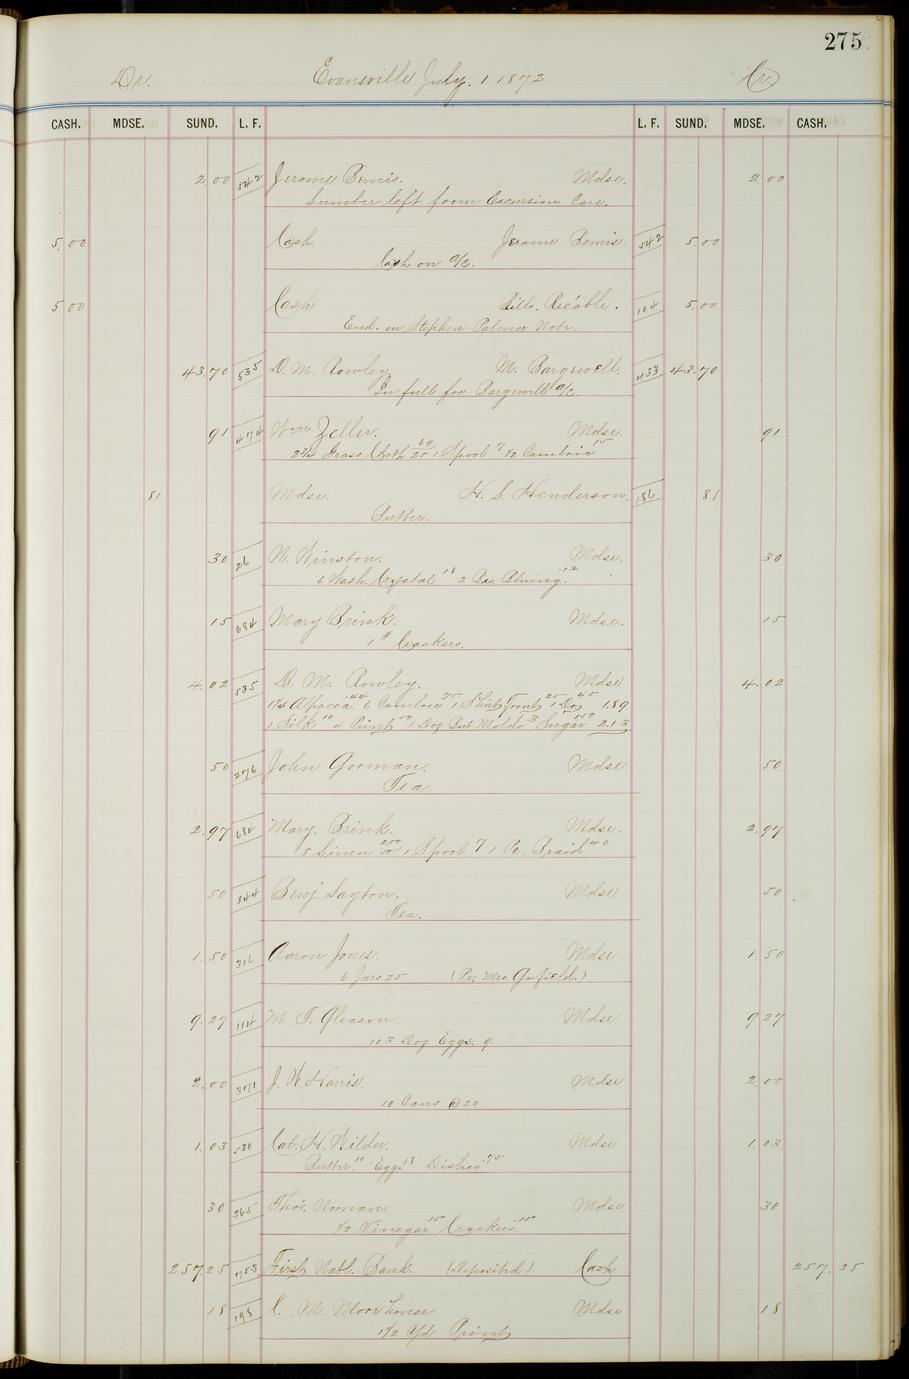 275
Dr. Evansville July. 1 1872 Cr
CASH. MDSE. SUND. L. F. L. F. SUND. MDSE. CASH.
2.00 542 Jerome Bemis. Mdse. 2.00
Lumber left from Excursion Cars.
5.00 Cash. Jerome Bemis. 542 5.00
Cash on a/c.
5.00 Cash Bills. Rec'able. 104 5.00
End. on Stephen Palmer Note.
43.70 535 D. M. Rowley. M. Bargewell. 433 43.70
In full for Bargewell a/c.
91 474 Wm Zeller. Mdse. 91
2 3/4 Grass Cloth 69/25 1 Spool 7 1/2 Cambric 15
81 Mdse. H. S. Henderson. 186 81
Butter.
30 26 N. Winston. Mdse. 30
Wash. Crystal 18 2 Box Bluing. 12
15 684 Mary Brink. Mdse. 15
1 # Crackers.
4.02 535 D. M. Rowley. Mdse 4.02
1 1/4 Alpacca .44 6 Cambric 75 1 Shirt Front 25 1 Doz 45 1.89
1 Silk 10 4 Print 50 1 Dog But Molds 3 Sugar 150 2.13
50 276 John Gorman. Mdse 50
Tea.
2.97 684 Mary. Brink. Mdse. 2.97
5 Linen 250/50 1 Spool 7 1 Pc. Braid 40
50 344 Benj. Layton. Mdse 50
Tea.
1.50 316 Aaron Jones. Mdse 1 50
6 Jars 25 (Pr, Mrs. Garfield.)
9.27 114 M. T. Gleason Mdse 9 27
103 Dog Eggs. 9.
2.00 371 J. W Harris. Mdse 2.00
10 Cans @ 20
1.03 530 Cal. H. Wilder. Mdse 1.03
Butter. 10 Eggs 18 Dishes 75
30 365 Thos. Noonan. Mdse 30
1/2 Vinegar 15 Crackers 15
257.25 753 First Natl. Bank. (Deposited) Cash 257.25
18 198 C. M. Moorhouse. Mdse 18
1 1/2 Yd Print